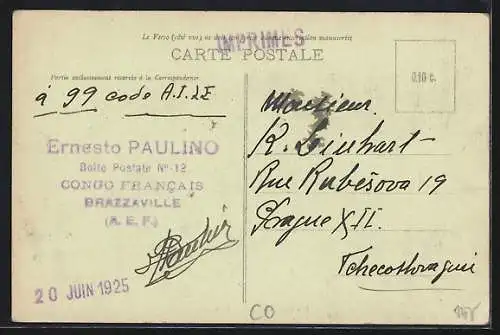 Le Verso (côté vue) ne doit
IMPRIMÉS
CARTE POSTALE
Partie exclusivement réservée à la Correspondance
0.10 c.
à 99 code A.I.2E
Ernesto PAULINO
Boite Postale N° 12
CONGO FRANÇAIS
BRAZZAVILLE
(A. E. F.)
20 JUIN 1925
Monsieur.
K. Linhart
Rue Rubešova 19
Prague XII.
Tchecoslovaquie
CO